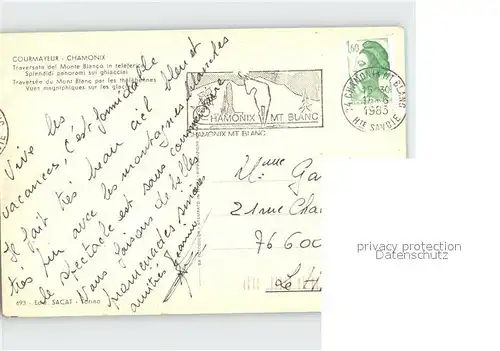 COURMAYEUR - CHAMONIX
Traversata del Monte Bianco in teleferica
Splendidi panorami sui ghiacciai
Traversée du Mont Blanc par les téléphériques
Vues magnifiques sur les glaciers
Vive les
vacances, c'est formidable
Il fait très beau ciel bleu et
très fin avec les montagnes blanches
le spectacle est sans commentaire
Nous faisons de belles
promenades sinon
amitiés Jeanine
693 - Ediz. SACAT - Torino
CHAMONIX MT BLANC
CHAMONIX MT BLANC
1,60
74 CHAMONIX MT BLANC
1983
HTE SAVOIE
Mme Ga
21 rue Cha
76600
Le H
privacy protection
Datenschutz